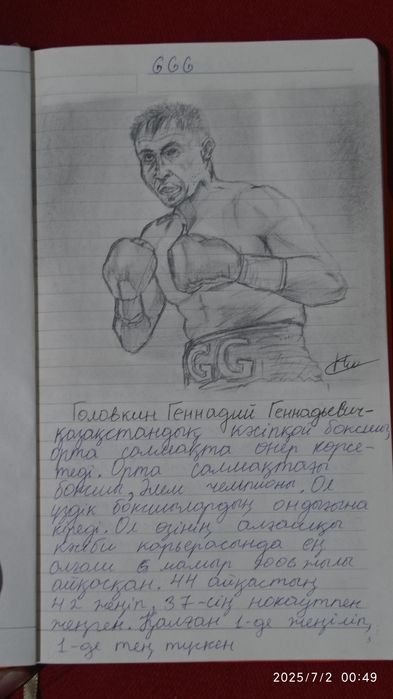 GGG
GG
Головкин Геннадий Геннадьевич-
қазақстандық кәсіпқой боксшы,
орта салмақта өнер көрсе-
теді. Орта салмақтағы
боксшы, әлем чемпионы. Ол
үздік боксшылардың ондығына
кіреді. Ол өзінің алғашқы
кәсіби карьерасында ең
алғаш 6 мамыр 2006 жылы
айқасқан. 44 айқастың
42 жеңіп, 37-сің нокаутпен
жеңген. Қалған 1-де жеңіліп,
1-де тең түскен
2025/7/2 00:49